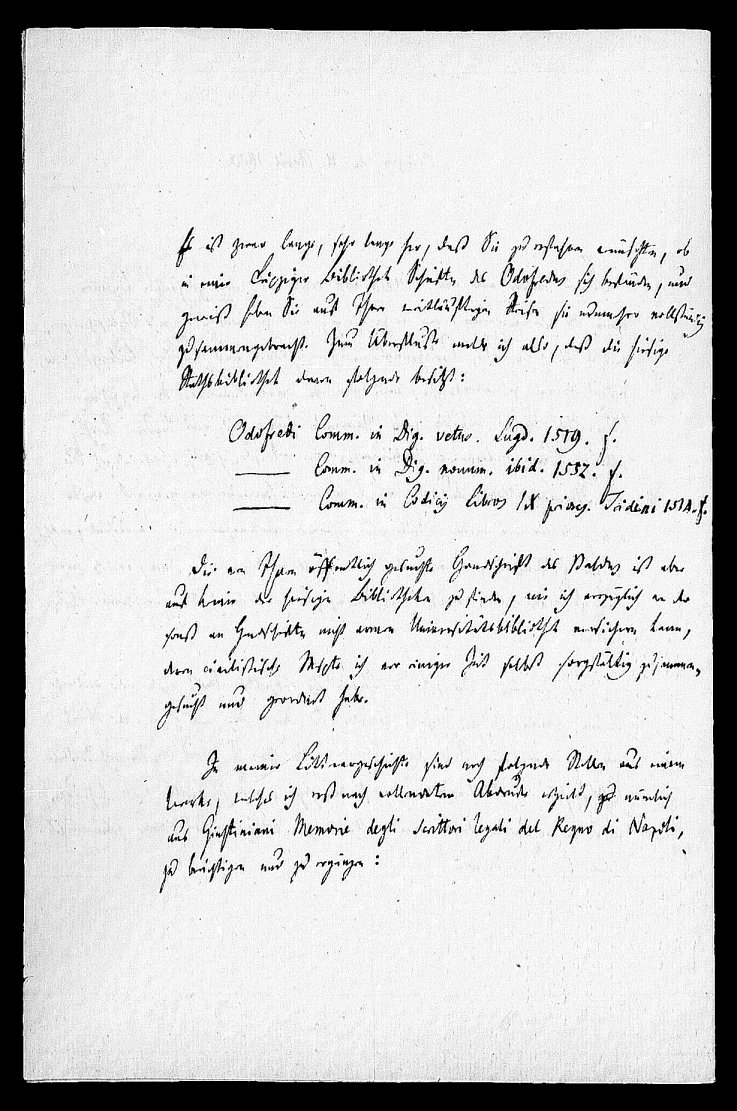 Es ist zwar lange, sehr lange her, daß Sie zu erfahren wünschten, ob
in einer Leipziger Bibliothek Schriften des Odofredus sich befänden, und
gewiß haben Sie auf Ihrer weitläuftigen Reise sie nunmehr vollständig
zusammengebracht. Zum Überfluße melde ich also, daß die hiesige
Rathsbibliothek davon folgende besitzt:
Odofredi Comm. in Dig. vetus. Lugd. 1519. f.
Comm. in Dig. novum. ibid. 1552. f.
Comm. in Codicis Libros IX priores. Tridini 1514. f.
Die von Ihnen öffentlich gesuchte Handschrift des Baldus ist aber
auf keiner der hiesigen Bibliotheken zu finden, wie ich vorzüglich von der
sonst an Handschriften nicht armen Universitätsbibliothek versichern kann,
deren civilistische Mscpte ich vor einiger Zeit selbst sorgfältig zusammen-
gesucht und geordnet habe.
In meiner Litterargeschichte sind noch folgende Stellen aus einem
Werke, welches ich erst nach vollendetem Abdrucke erhielt, nämlich
aus Giustiniani Memorie degli Scrittori legali del Regno di Napoli,
zu berichtigen und zu ergänzen: